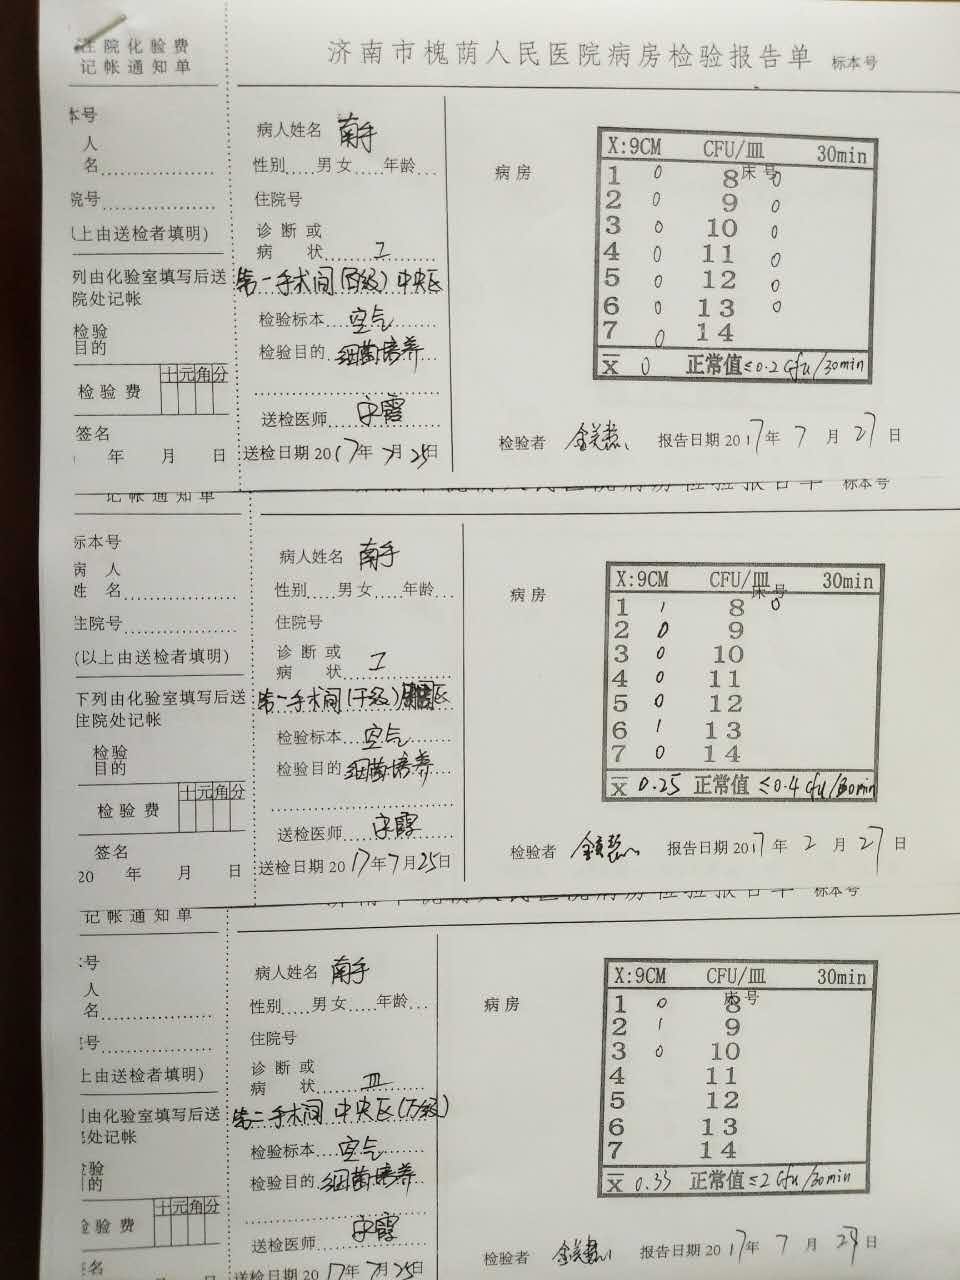 住院化验费
记帐通知单
济南市槐荫人民医院病房检验报告单 标本号
本号
人
名
院号
以上由送检者填明)
列由化验室填写后送
院处记帐
检验
目的
十元角分
检验费
签名
年 月 日
病人姓名 南手
性别 男女 年龄
住院号
诊断或
病 状 I
第一手术间(百级)中央区
检验标本 空气
检验目的 细菌培养
送检医师
送检日期 2017年7月25日
病房
床号
X:9CM CFU/皿 30min
1 0 8 0
2 0 9 0
3 0 10 0
4 0 11 0
5 0 12 0
6 0 13 0
7 0 14
X̄ 0 正常值≤0.2cfu/30min
检验者 报告日期 2017年 7 月 27 日
记帐通知单
济南市槐荫人民医院病房检验报告单 标本号
标本号
病 人
姓 名
住院号
(以上由送检者填明)
下列由化验室填写后送
住院处记帐
检验
目的
十元角分
检验费
签名
20 年 月 日
病人姓名 南手
性别 男女 年龄
住院号
诊断或
病 状 I
第一手术间(千级) 区
检验标本 空气
检验目的 细菌培养
送检医师
送检日期 2017年7月25日
病房
床号
X:9CM CFU/皿 30min
1 1 8 0
2 0 9
3 0 10
4 0 11
5 0 12
6 1 13
7 0 14
X̄ 0.25 正常值 ≤0.4cfu/30min
检验者 报告日期 2017年 2 月 27 日
记帐通知单
济南市槐荫人民医院病房检验报告单 标本号
号
人
名
号
上由送检者填明)
由化验室填写后送
处记帐
验
的
十元角分
验费
名
病人姓名 南手
性别 男女 年龄
住院号
诊断或
病 状 III
第二手术间 中央区(万级)
检验标本 空气
检验目的 细菌培养
送检医师
送检日期 2017年7月25日
病房
床号
X:9CM CFU/皿 30min
1 0 8
2 1 9
3 0 10
4 11
5 12
6 13
7 14
X̄ 0.33 正常值≤2cfu/30min
检验者 报告日期 2017年 7 月 27 日